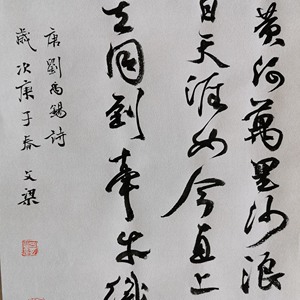 黄河萬里沙浪
自天涯如今直上
去同到牽牛織
唐劉禹錫詩
歲次庚子春 文梁